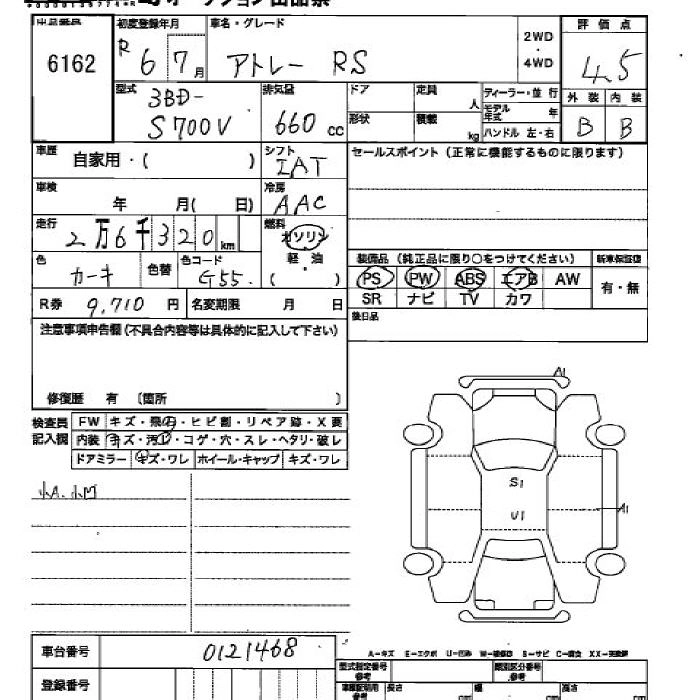 出品番号 初度登録年月 車名・グレード 2WD・4WD 評価点
6162 R 6 7月 アトレー RS 4.5
型式 3BD- S700V 排気量 660 cc ドア 定員 人 ディーラー・並行 外装 内装
形状 積載 kg モデル年式 年 ハンドル 左・右 B B
車歴 自家用・( ) シフト IAT セールスポイント(正常に機能するものに限ります)
車検 年 月( 日) 冷房 AAC
走行 2万6千320km 燃料 ガソリン 軽油 ( )
色 カーキ 色替 色コード G55 装備品(純正品に限り○をつけてください) 新車保証書
PS PW ABS エアB AW 有・無
R券 9,710円 名変期限 月 日 SR ナビ TV カワ
注意事項申告欄(不具合内容等は具体的に記入して下さい) 後日品
修復歴 有 〔箇所 〕
検査員記入欄 FW キズ・飛石・ヒビ割・リペア跡・X要
内装 キズ・汚れ・コゲ・穴・スレ・ヘタリ・破レ
ドアミラー キズ・ワレ ホイール・キャップ キズ・ワレ
小A.小凹
A1
S1
U1
A1
車台番号 0121468
A-キズ E-エクボ U-凹み S-サビ C-腐食
登録番号 型式指定番号 類別区分番号
長さ cm 幅 cm 高さ cm